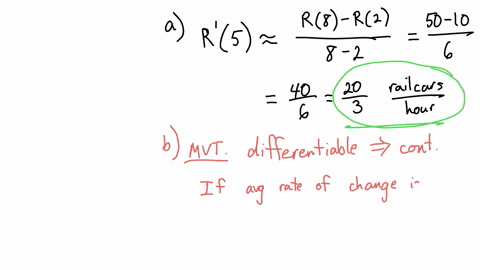 a) R'(5) ≈ R(8)-R(2) / 8-2 = 50-10 / 6
= 40/6 = 20/3 railcars/hour
b) MVT. differentiable ⇒ cont.
If avg rate of change i